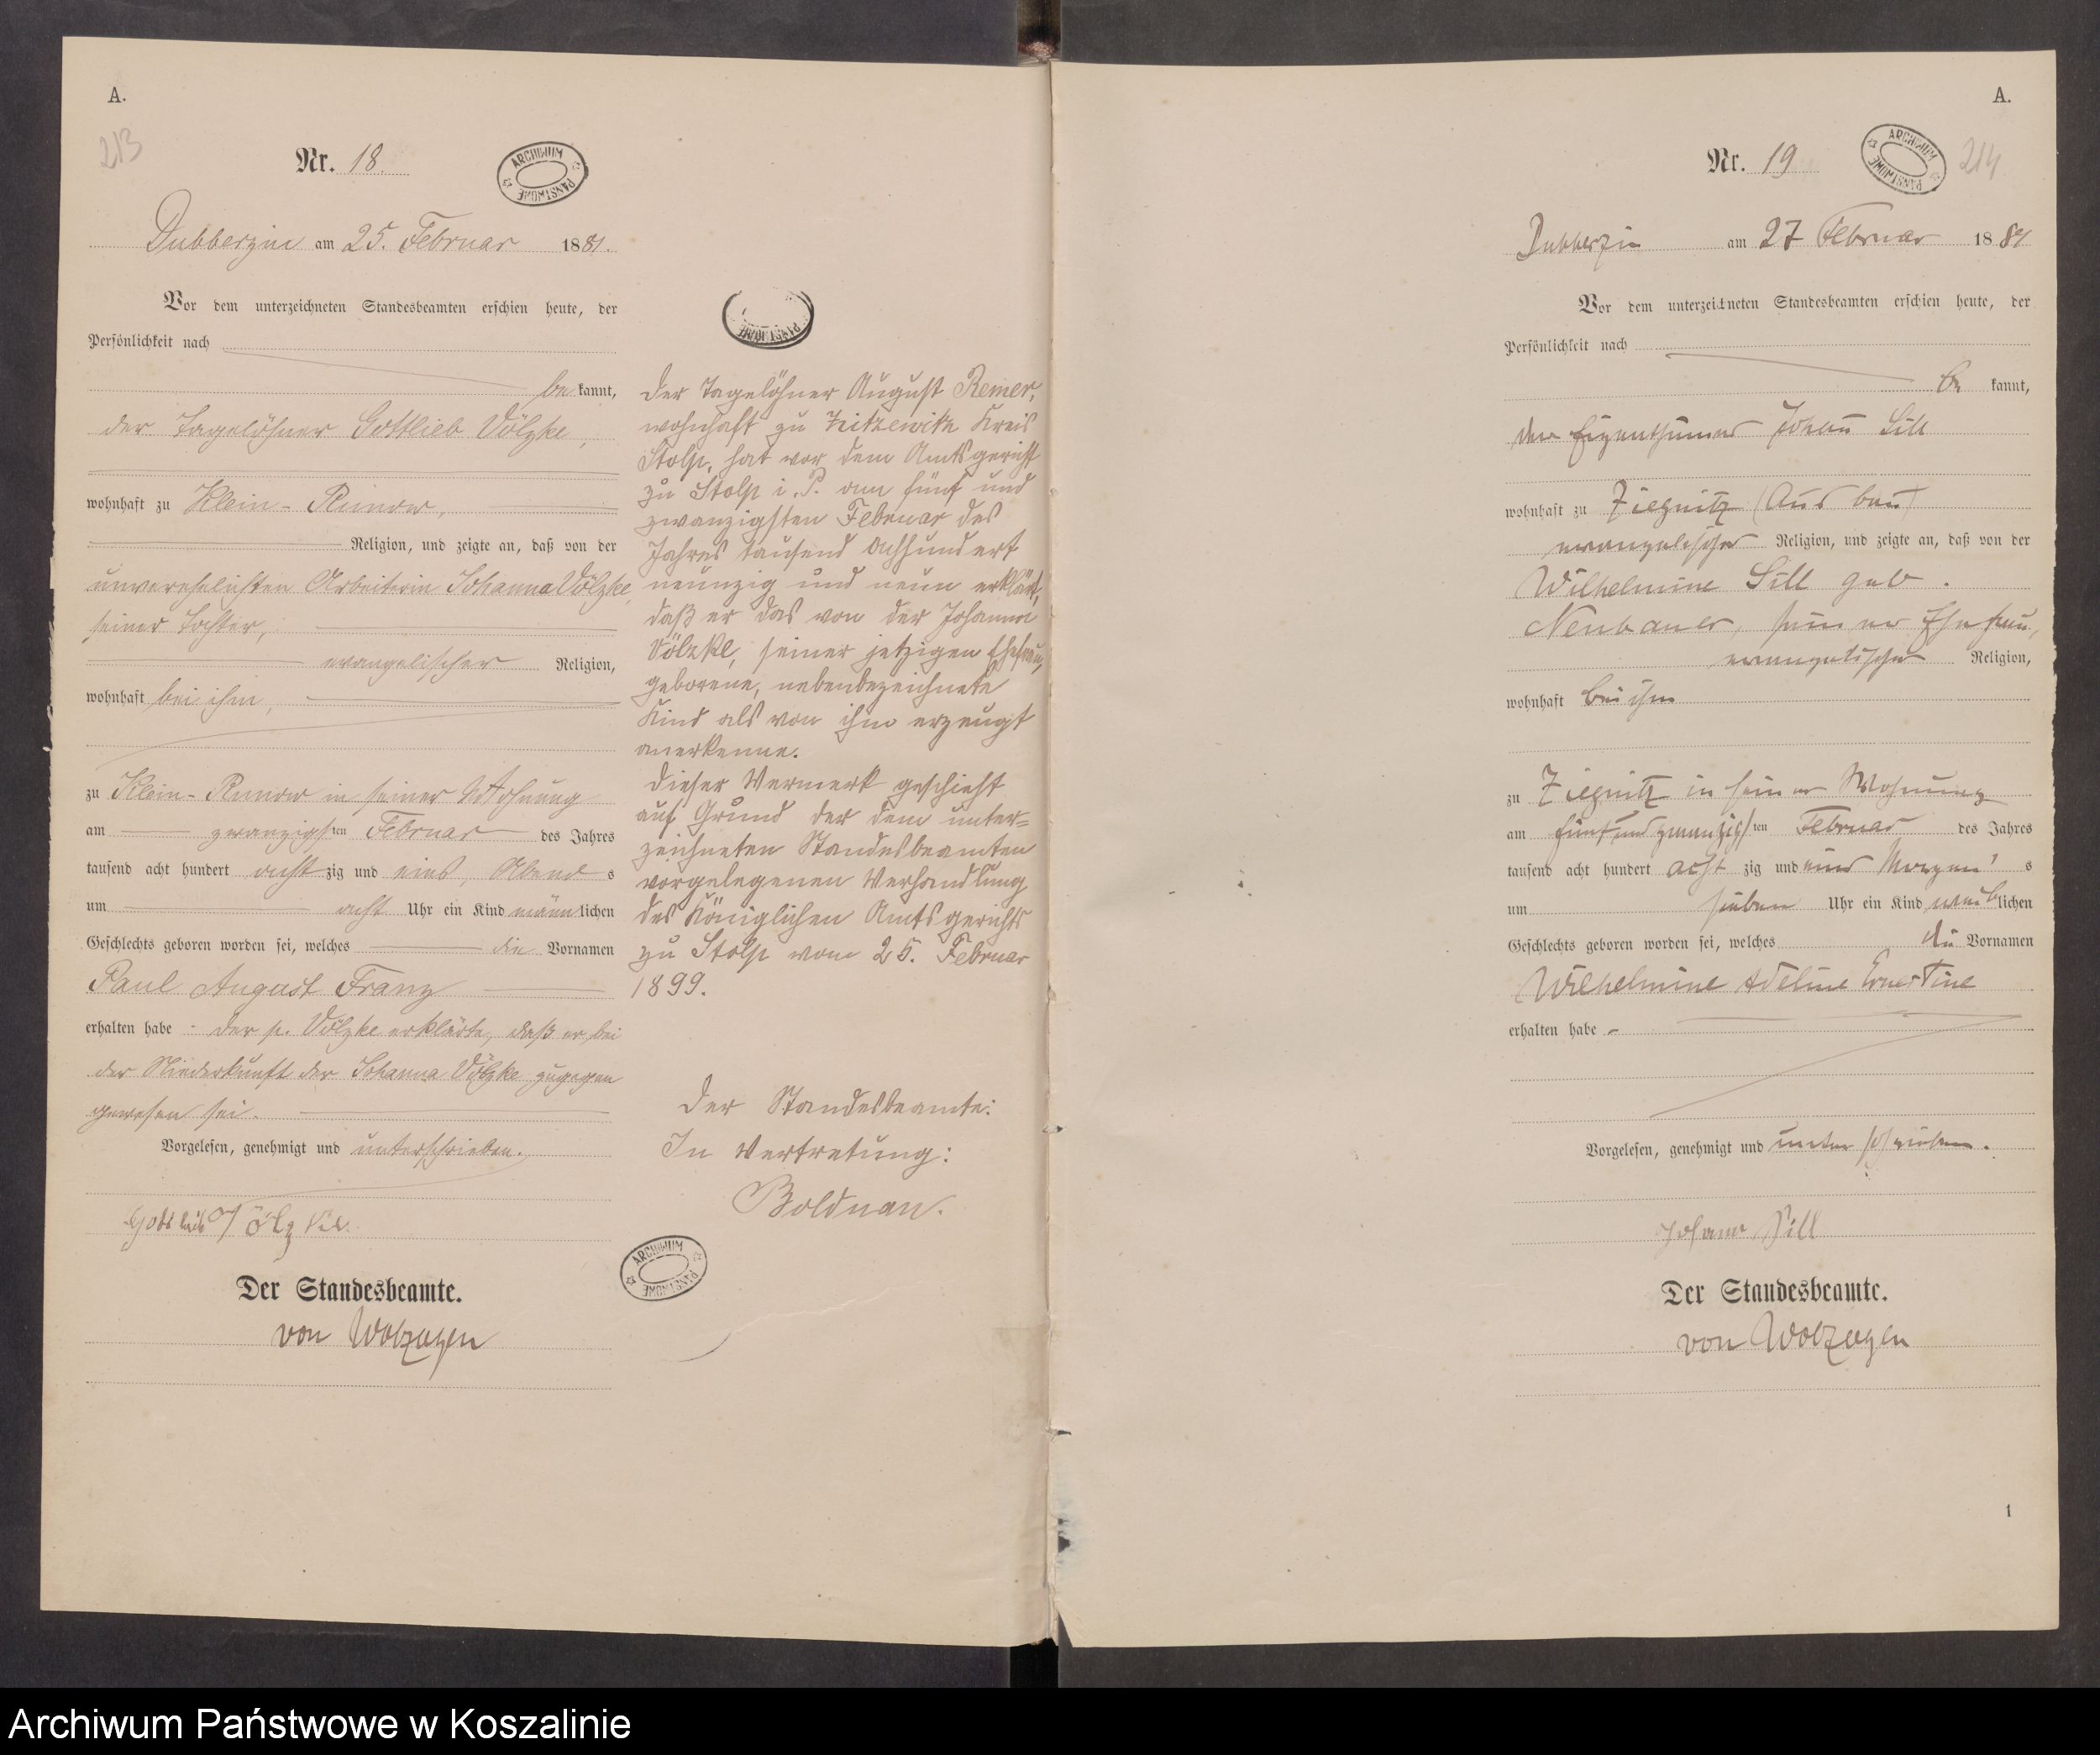 A.
213
Nr. 18.
ARCHIWUM PAŃSTWOWE
Dubberzin am 25. Februar 1881.
Vor dem unterzeichneten Standesbeamten erschien heute, der
Persönlichkeit nach
be kannt,
der Tagelöhner Gottlieb Völzke,
wohnhaft zu Klein-Runow,
Religion, und zeigte an, daß von der
unverehelichten Arbeiterin Johanna Völzke,
seiner Tochter,
evangelischer Religion,
wohnhaft bei ihm,
zu Klein-Runow in seiner Wohnung
am zwanzigsten Februar des Jahres
tausend acht hundert acht zig und eins, Abend s
um acht Uhr ein Kind männlichen
Geschlechts geboren worden sei, welches die Vornamen
Paul August Franz
erhalten habe - der p. Völzke erklärte, daß er bei
der Niederkunft der Johanna Völzke zugegen
gewesen sei.
Vorgelesen, genehmigt und unterschrieben.
Gottlieb Völzke
Der Standesbeamte.
von Wolzogen
PAŃSTWOWE
Der Tagelöhner August Remer,
wohnhaft zu Zitzewitz Kreis
Stolp, hat vor dem Amtsgericht
zu Stolp i. P. am fünf und
zwanzigsten Februar des
Jahres tausend achthundert
neunzig und neun erklärt,
daß er das von der Johanna
Völzke, seiner jetzigen Ehefrau,
geborene, nebenbezeichnete
Kind als von ihm erzeugt
anerkenne.
Dieser Vermerk geschieht
auf Grund der dem unter=
zeichneten Standesbeamten
vorgelegenen Verhandlung
des Königlichen Amtsgerichts
zu Stolp vom 25. Februar
1899.
Der Standesbeamte:
In Vertretung:
Boldnan.
ARCHIWUM PAŃSTWOWE
A.
Nr. 19
ARCHIWUM PAŃSTWOWE
214
Dubberzin am 27 Februar 1881
Vor dem unterzeichneten Standesbeamten erschien heute, der
Persönlichkeit nach
be kannt,
der Eigenthümer Johann Sill
wohnhaft zu Ziegnitz (Ausbau)
evangelischer Religion, und zeigte an, daß von der
Wilhelmine Sill geb.
Neubauer, seiner Ehefrau,
evangelischer Religion,
wohnhaft bei ihm
zu Ziegnitz in seiner Wohnung
am fünf und zwanzigsten Februar des Jahres
tausend acht hundert acht zig und eins Morgen s
um sieben Uhr ein Kind weiblichen
Geschlechts geboren worden sei, welches die Vornamen
Wilhelmine Adeline Ernestine
erhalten habe -
Vorgelesen, genehmigt und unterschrieben.
Johann Sill
Der Standesbeamte.
von Wolzogen
1
Archiwum Państwowe w Koszalinie